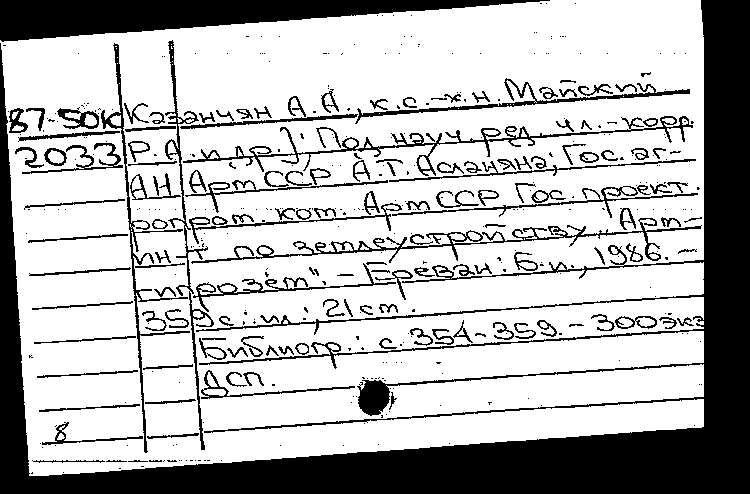 87-50к Казанчян А.А., к.с.-х.н. Майский
2033 Р.А. и др.]; Под науч. ред. чл.-корр.
АН АрмССР А.Т. Асланяна; Гос. аг-
ропром. ком. АрмССР, Гос. проект.
ин-т по землеустройству „Арм-
гипрозем". - Ереван: Б.и., 1986. -
359 с.: ил.; 21 см.
Библиогр.: с. 354-359. - 300 экз
ДСП.
8